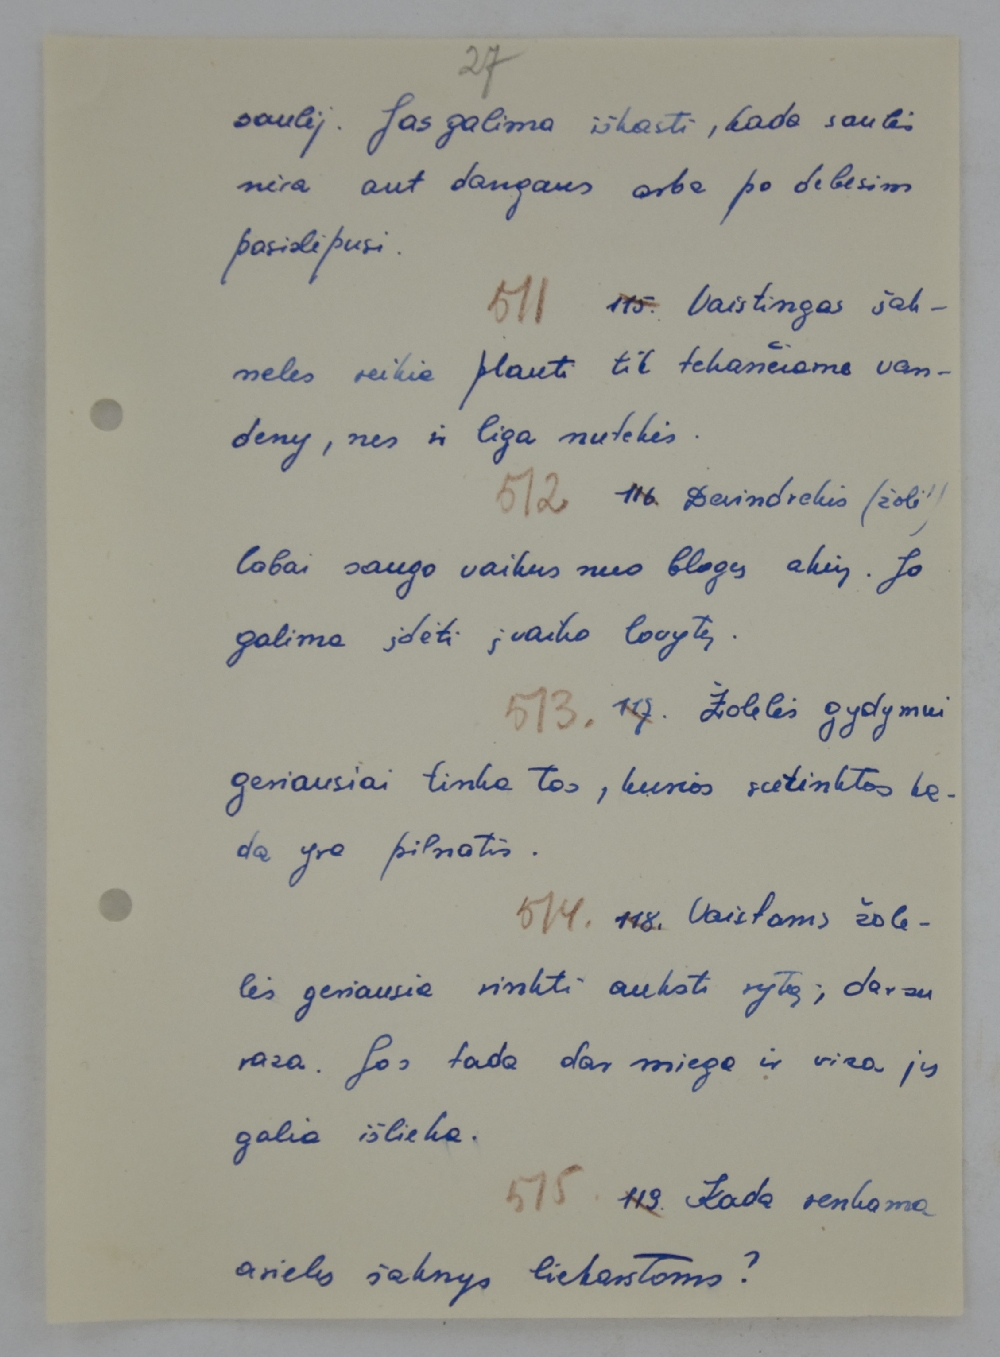 27
saulėj. Jas galima iškasti, kada saulės
nėra ant dangaus arba po debesim
pasislėpusi.
511 115. Vaistingas šak-
neles reikia plauti tik tekančiame van-
deny, nes ir liga nutekės.
512 116. Devindrekis (žolė)
labai saugo vaikus nuo blogų akių. Jo
galima įdėti į vaiko lovytę.
513. 117. Žolelės gydymui
geriausiai tinka tos, kurios surinktos ka-
da yra pilnatis.
514. 118. Vaistams žole-
lės geriausia rinkti anksti rytą, dar su
rasa. Jos tada dar miega ir visa jų
galia išlieka.
515. 119. Kada renkama
arielos šaknys liekarstoms?